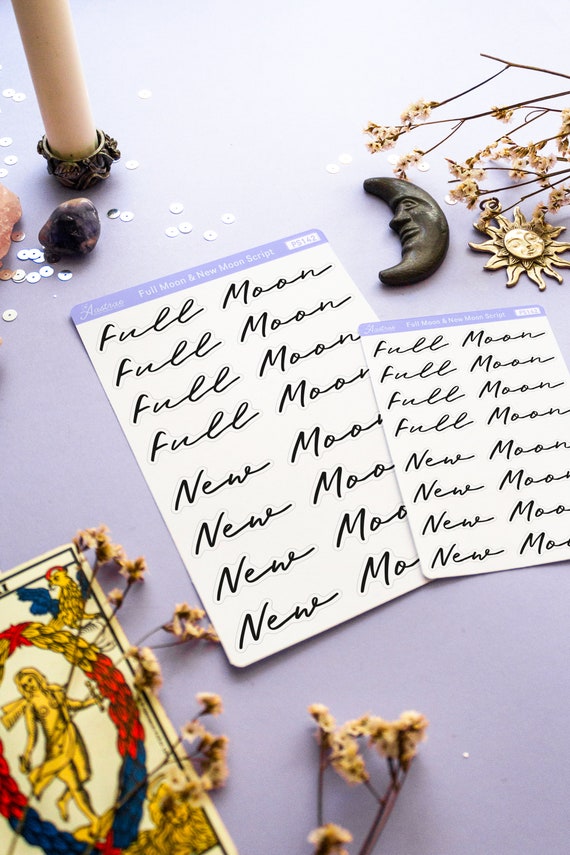 Full Moon & New Moon Script PS142
Full Moon
Full Moon
Full Moon
Full Moon
New Moon
New Moo
New Moo
New Mo
Full Moon & New Moon Script PS142
Full Moon
Full Moon
Full Moon
Full Moon
New Moon
New Moon
New Moon
New Moo